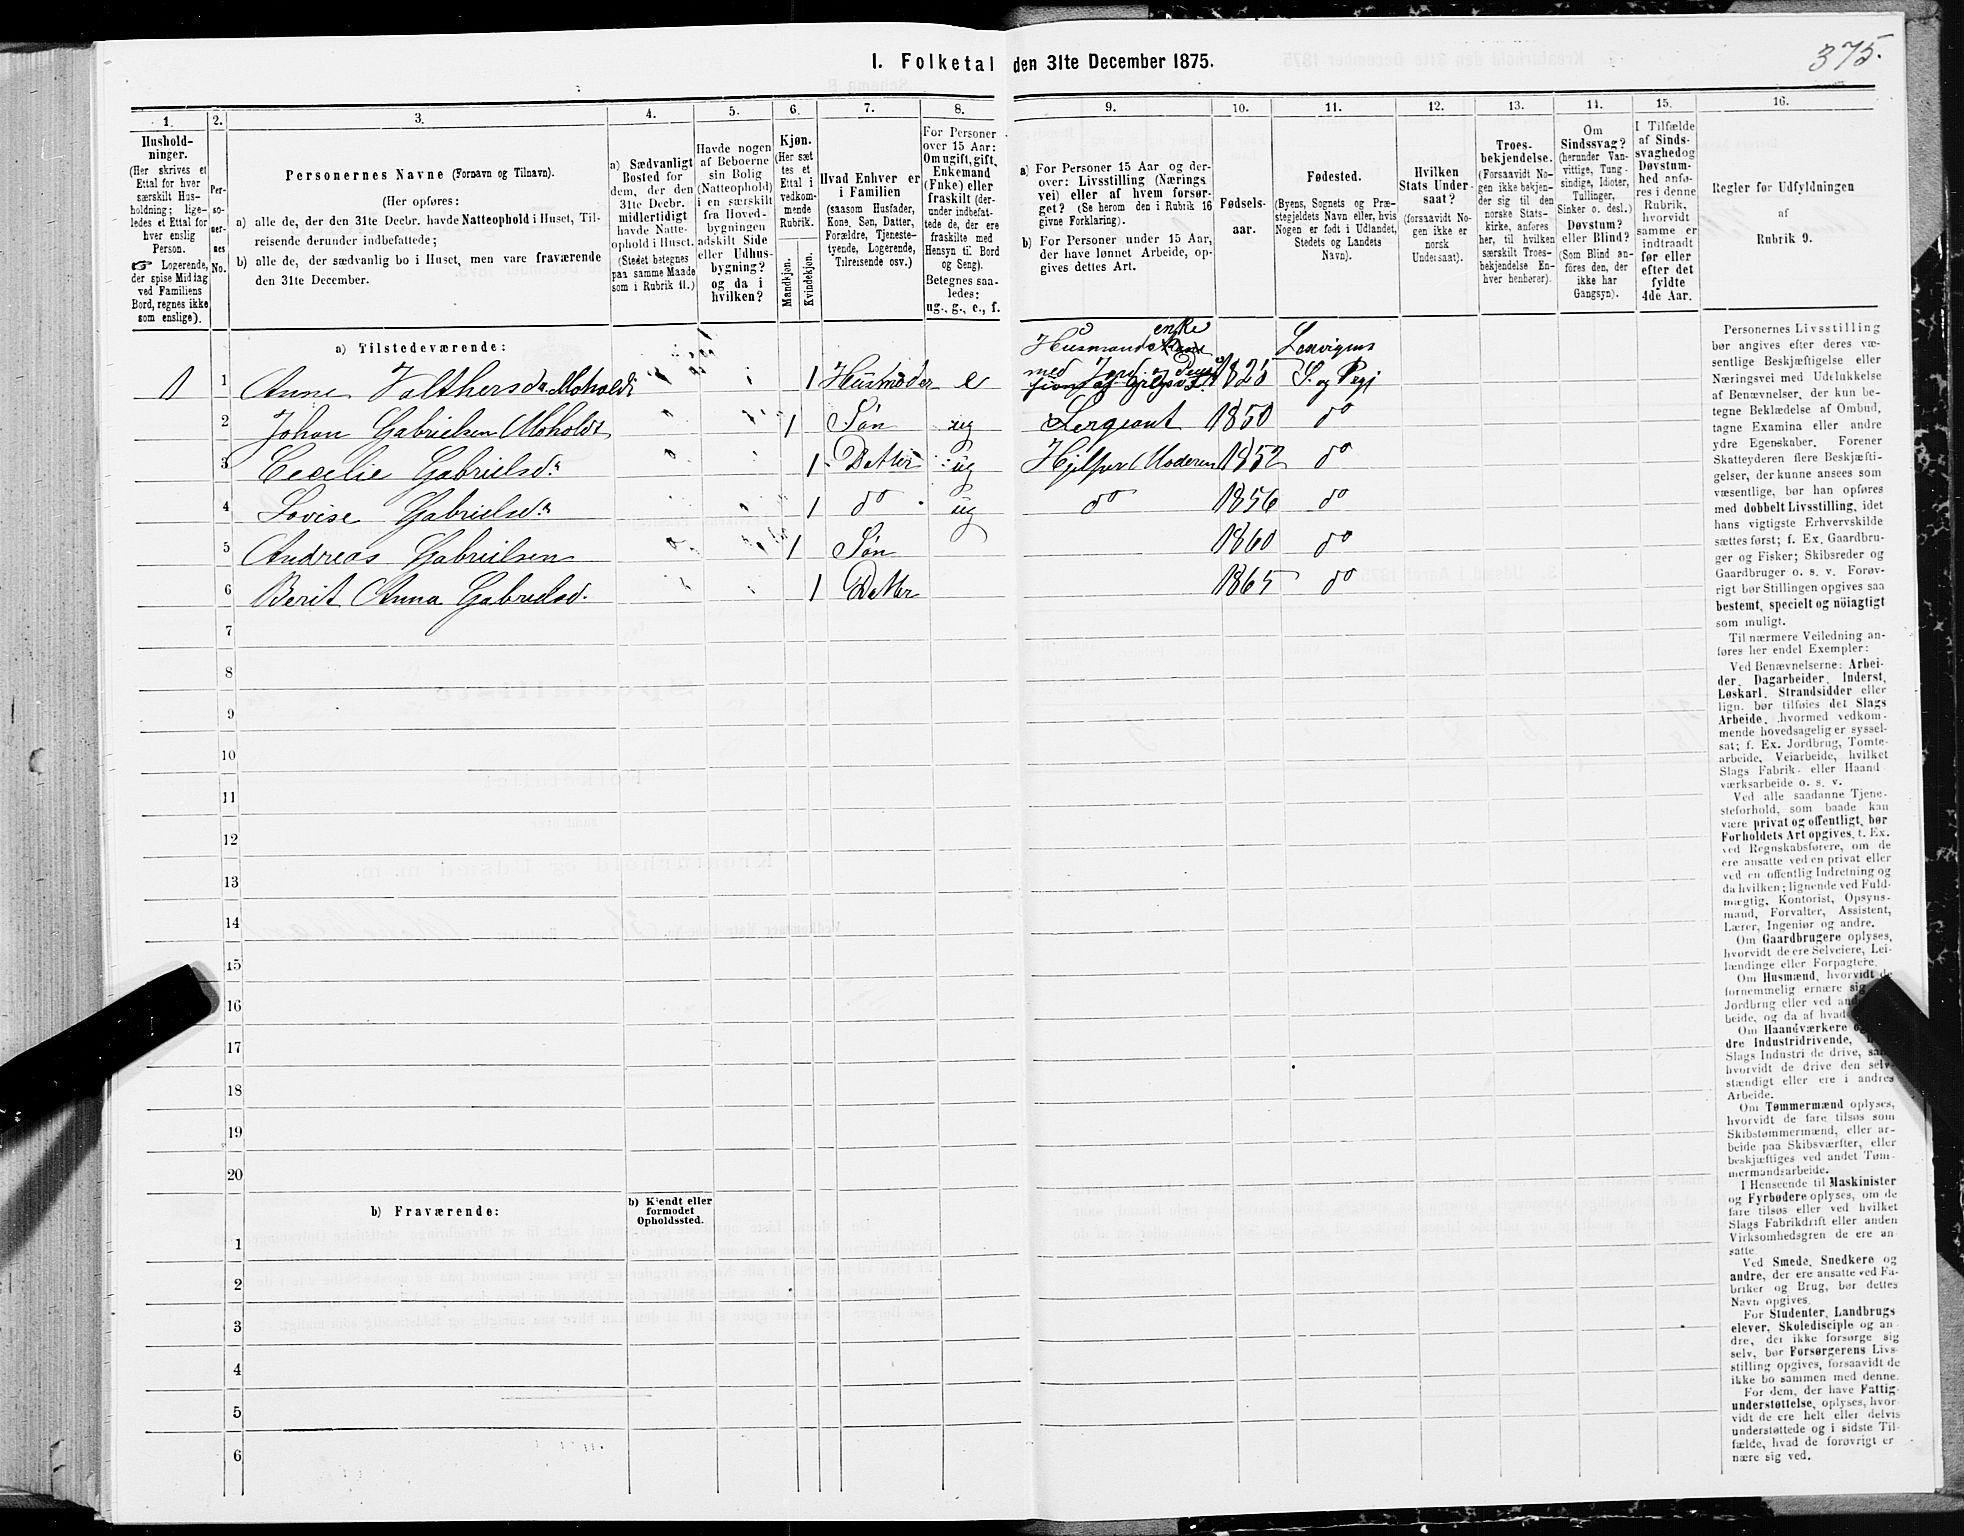 I. Folketal den 31te December 1875.
375.
1.
2.
3.
4.
5.
6.
7.
8.
9.
10.
11.
12.
13.
14.
15.
16.
Hushold-
ninger.
(Her skrives et
Ettal for hver
særskilt Hus-
holdning; lige-
ledes et Ettal for
hver enslig
Person.
☞ Logerende,
der spise Middag
ved Familiens
Bord, regnes ikke
som enslige).
Per-
so-
ner-
nes
No.
Personernes Navne (Fornavn og Tilnavn).
(Her opføres:
a) alle de, der den 31te Decbr. havde Natteophold i Huset, Til-
reisende derunder indbefattede;
b) alle de, der sædvanlig bo i Huset, men vare fraværende
den 31te December.
a) Sædvanligt
Bosted for
dem, der den
31te Decbr.
midlertidigt
havde Natte-
ophold i Huset.
(Stedet betegnes
paa samme Maade
som i Rubrik 11.)
Havde nogen
af Beboerne
sin Bolig
(Natteophold)
i en særskilt
fra Hoved-
bygningen
adskilt Side
eller Udhus-
bygning?
og da i
hvilken?
Kjøn.
(Her sæt
tes et
Ettal i
vedkom-
mende
Rubrik.
Mandkjøn.
Kvindekjøn.
Hvad Enhver er
i Familien
(saasom Husfader,
Kone, Søn, Datter,
Forældre, Tjeneste-
tyende, Logerende,
Tilreisende osv.)
For Personer
over 15 Aar:
Om ugift, gift,
Enkemand
(Enke) eller
fraskilt (der-
under indbefat-
tede de, der ere
fraskilte med
Hensyn til Bord
og Seng).
Betegnes saa-
ledes:
ug., g., e., f.
a) For Personer 15 Aar og der-
over: Livsstilling (Nærings
vei) eller af hvem forsør-
get? (Se herom den i Rubrik 16
givne Forklaring).
b) For Personer under 15 Aar,
der have lønnet Arbeide, op-
gives dettes Art.
Fødsels-
aar.
Fødested.
(Byens, Sognets og Præ-
stegjeldets Navn eller, hvis
Nogen er født i Udlandet,
Stedets og Landets
Navn).
Hvilken
Stats Under-
saat?
(forsaavidt No-
gen ikke er
norsk
Undersaat).
Troes-
bekjendelse.
(Forsaavidt No-
gen ikke bekjen-
der sig til den
norske Stats-
kirke, anføres
her, til hvilken
særskilt Troes-
bekjendelse En-
hver henhører).
Om
Sindssvag?
(herunder Van-
vittige, Tung-
sindige, Idioter,
Tullinger,
Sinker o. desl.)
Døvstum?
eller Blind?
(Som Blind an-
føres den, der
ikke har
Gangsyn).
I Tilfælde
af Sinds-
svaghed og
Døvstum-
hed anfø-
res i denne
Rubrik,
hvorvidt
samme er
indtraadt
før eller
efter det
fyldte
4de Aar.
Regler før Udfyldningen
af
Rubrik 9.
a) Tilstedeværende:
1 1 Anne Valthersdr Moholdt 1 Husmoder e Husmands enke med Jord 1825 S. og Pgj
2 Johan Gabrielsen Moholdt 1 Søn ug Sergeant 1850 do
3 Cecilie Gabrielsd. 1 Datter ug Hjelper Moderen 1852 do
4 Lovise Gabrielsd. 1 do ug do 1856 do
5 Andreas Gabrielsen 1 Søn 1860 do
6 Berit Anna Gabrielsd. 1 Datter 1865 do
7
8
9
10
11
12
13
14
15
16
17
18
19
20
b) Fraværende:
b) Kjendt eller
formodet
Opholdssted.
1
2
3
4
5
6
Personernes Livsstilling
bør angives efter deres væ-
sentlige Beskjæftigelse eller
Næringsvei med Udelukkelse
af Benævnelser, der kun be-
tegne Beklædelse af Ombud,
tagne Examina eller andre
ydre Egenskaber. Forener
Skatteyderen flere Beskjæfti-
gelser, der kunne ansees som
væsentlige, bør han opføres
med dobbelt Livsstilling, idet
hans vigtigste Erhvervskilde
sættes først; f. Ex. Gaardbru-
ger og Fisker; Skibsreder og
Gaardbruger o. s. v. Forøv-
rigt bør Stillingen opgives saa
bestemt, specielt og nöiagtigt
som muligt.
Til nærmere Veiledning an-
føres her endel Exempler:
Ved Benævnelserne: Arbei-
der, Dagarbeider, Inderst,
Løskarl, Strandsidder eller
lign. bør tilføies det Slags
Arbeide, hvormed vedkom-
mende hovedsagelig er syssel-
sat; f. Ex. Jordbrug, Tomte-
arbeide, Veiarbeide, hvilket
Slags Fabrik- eller Haand-
værksarbeide o. s. v.
Ved alle saadanne Tjene-
steforhold, som baade kan
være privat og offentligt, bør
Forholdets Art opgives, t. Ex.
ved Regnskabsførere, om de
ere ansatte ved en privat eller
ved en offentlig Indretning og
da hvilken; lignende ved Fuld-
mægtig, Kontorist, Opsyns-
mand, Forvalter, Assistent,
Lærer, Ingeniør og andre.
Om Gaardbrugere oplyses,
hvorvidt de ere Selveiere, Lei-
lændinge eller Forpagtere.
Om Husmænd, hvorvidt de
fornemmelig ernære sig
Jordbrug eller ved
beide, og da af hvad
Om Haandværkere
dre Industridrivende,
Slags Industri de drive,
hvorvidt de drive den selv-
stændigt eller ere i andres
Arbeide.
Om Tømmermænd oplyses,
hvorvidt de fare tilsøs som
Skibstømmermænd, eller ar-
beide paa Skibsværfter, eller
beskjæftiges ved andet Tøm-
mermandsarbeide.
I Henseende til Maskinister
og Fyrbødere oplyses, om de
fare tilsøs eller ved hvilket
Slags Fabrikdrift eller anden
Virksomhedsgren de ere an-
satte
Ved Smede, Snedkere og
andre, der ere ansatte ved Fa-
briker og Brug, bør dettes
Navn opgives.
For Studenter, Landbrugs
elever, Skoledisciple og an-
dre, der ikke forsørge sig
selv, bør Forsørgerens Livs-
stilling opgives, forsaavidt de
ikke bo sammen med denne.
For dem, der have Fattig-
understøttelse, oplyses, hvor-
vidt de ere helt eller delvis
understøttede og i sidste Til-
fælde, hvad de forøvrigt er
nære sig ved.